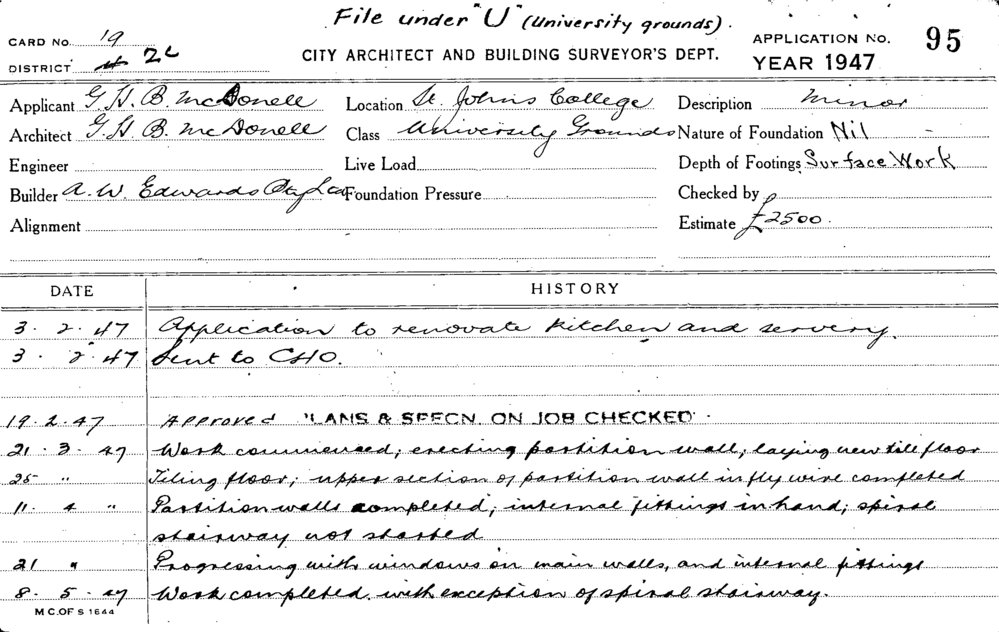 File under "U" (University grounds).
CARD No. 19
DISTRICT 4 2c
CITY ARCHITECT AND BUILDING SURVEYOR'S DEPT.
APPLICATION No. 95
YEAR 1947
Applicant G. H. B. McDonell Location St. Johns College Description Minor
Architect G. H. B. McDonell Class University Grounds Nature of Foundation Nil -
Engineer Live Load Depth of Footings Surface Work
Builder A. W. Edwards Pty Ltd Foundation Pressure Checked by
Alignment Estimate £2500.
DATE HISTORY
3. 2. 47 Application to renovate kitchen and servery.
3. 2. 47 Sent to CHO.
19. 2. 47 Approved "LANS & SPECN. ON JOB CHECKED"
21. 3. 47 Work commenced; erecting partition wall; laying new tile floor
25 " Tiling floor; upper section of partition wall in fly wire completed
11. 4 " Partition walls completed; internal fittings in hand; spiral
stairway not started
21 " Progressing with windows on main walls, and internal fittings
8. 5. 47 Work completed with exception of spiral stairway.
M C. OF S 1644